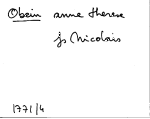 Obein anne therese
js Nicolais
1771/4